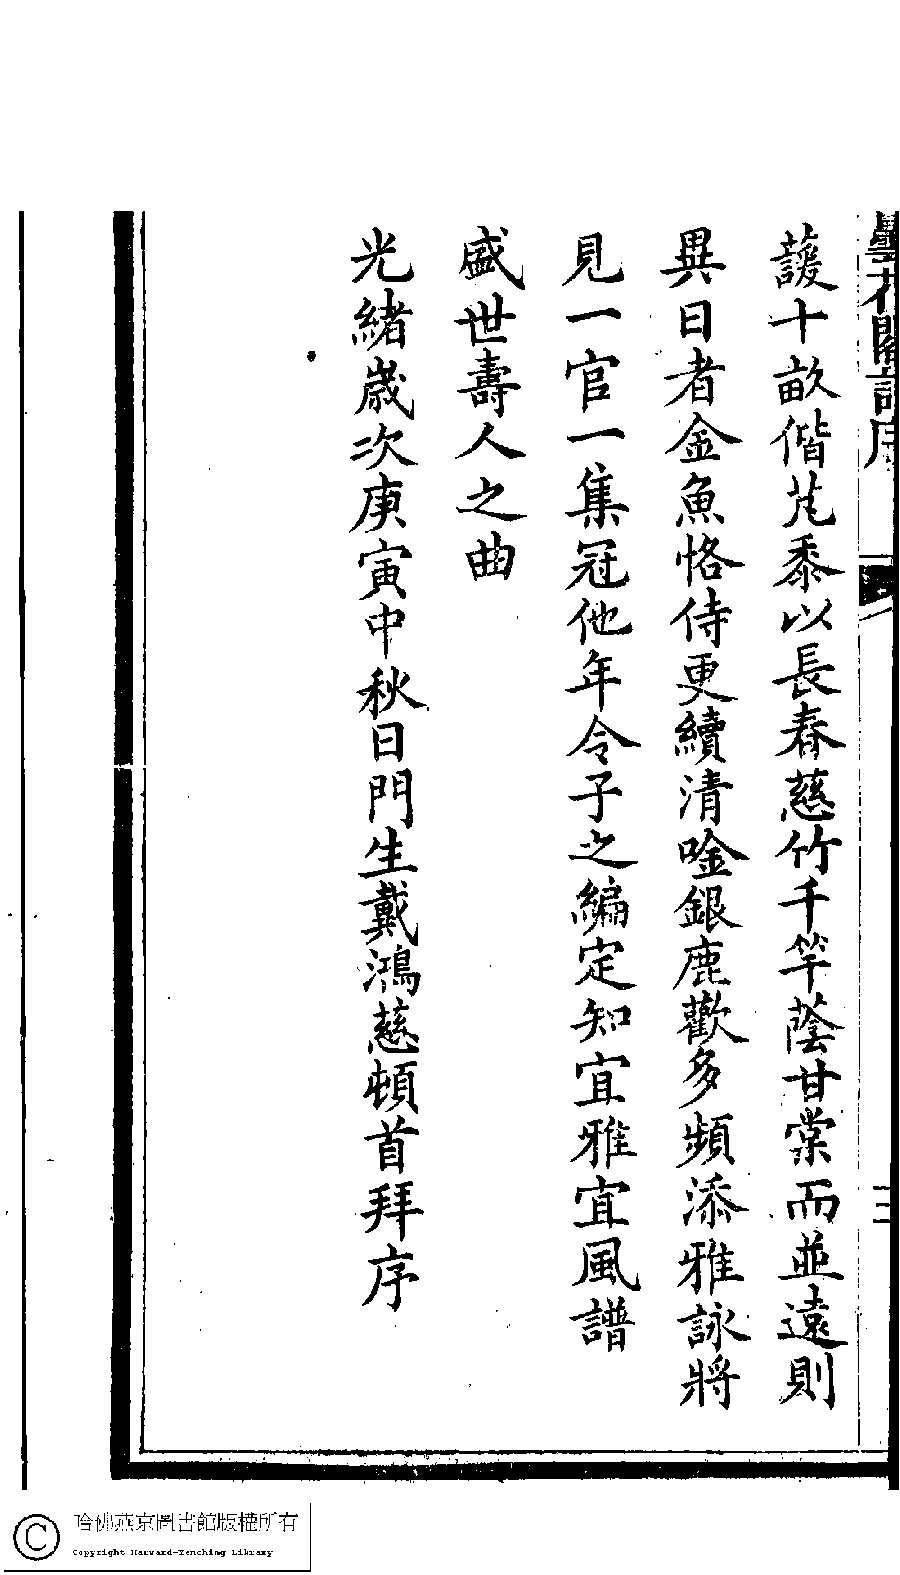 曇花閣詩序
三
蘐十畝偕芃黍以長春慈竹千竿蔭甘棠而並遠則
異日者金魚恪侍更續清唫銀鹿歡多頻添雅詠將
見一官一集冠他年令子之編定知宜雅宜風譜
盛世壽人之曲
光緒歲次庚寅中秋日門生戴鴻慈頓首拜序
哈佛燕京圖書館版權所有
Copyright Harvard-Yenching Library